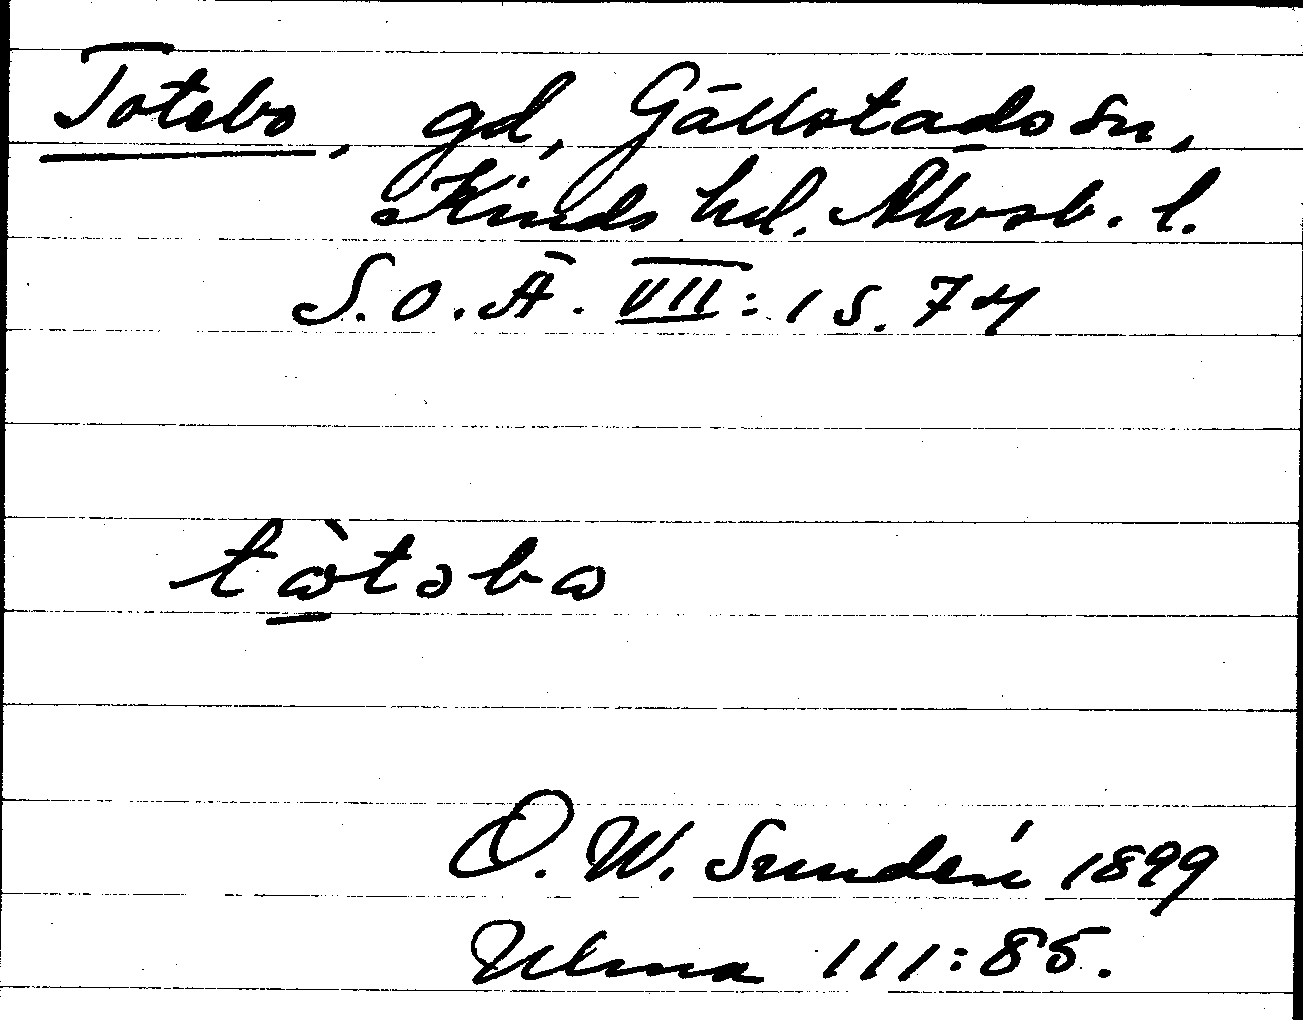 Totebo, gd, Gällstads sn,
Kinds hd. Älvsb. l.
S.O.Ä. VII:1 s. 74
tòtəbo
D. W. Sundén 1899
Ulma 111:85.